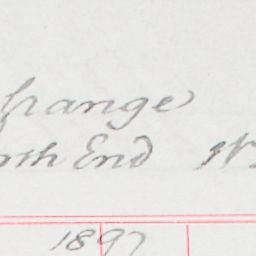 grange
rth End W
1897